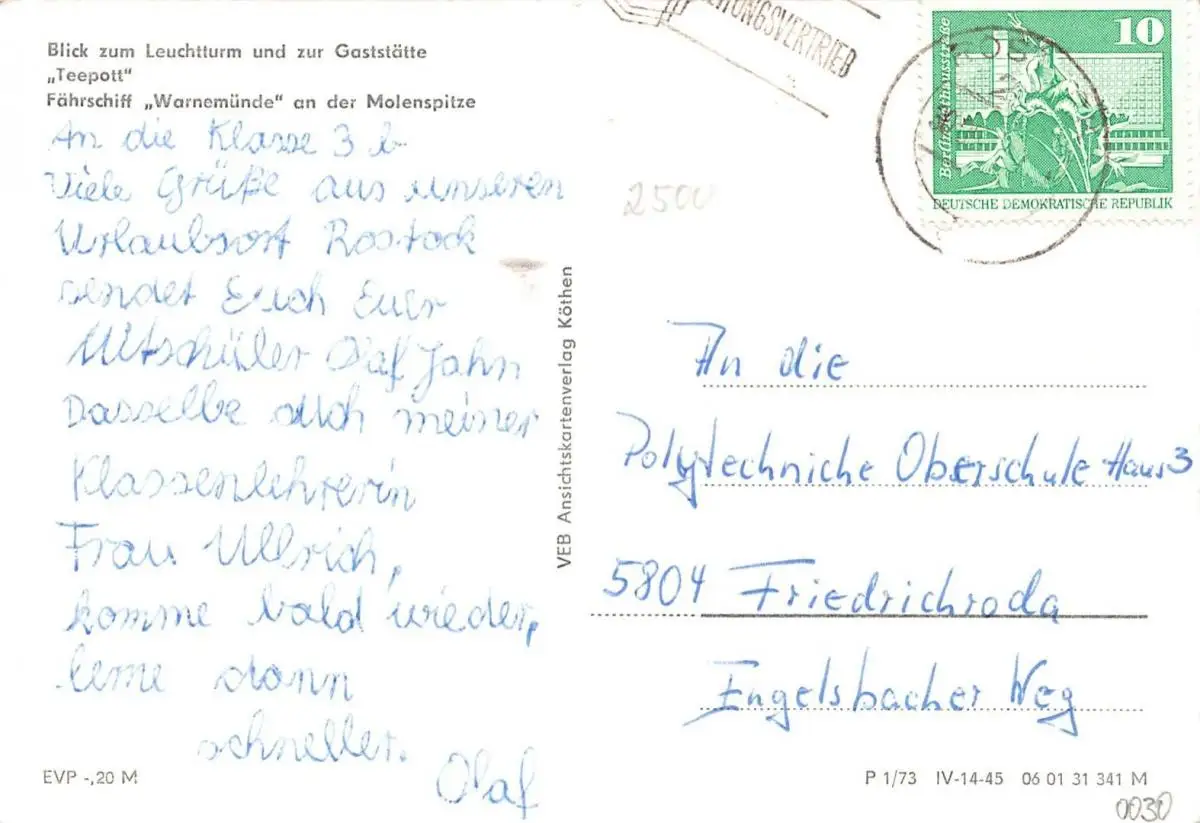 Blick zum Leuchtturm und zur Gaststätte
„Teepott“
Fährschiff „Warnemünde“ an der Molenspitze
An die Klasse 3 b
Viele Grüße aus unseren
Urlaubsort Rostock
sendet Euch Euer
Mitschüler Olaf Jahn
Dasselbe auch meiner
Klassenlehrerin
Frau Ullrich,
komme bald wieder,
lerne dann
schneller.
Olaf
EVP -,20 M
VEB Ansichtskartenverlag Köthen
2500
10
Berlin, Rathausstraße
DEUTSCHE DEMOKRATISCHE REPUBLIK
An die
Polytechniche Oberschule Haus 3
5804 Friedrichroda
Engelsbacher Weg
P 1/73 IV-14-45 06 01 31 341 M
0030